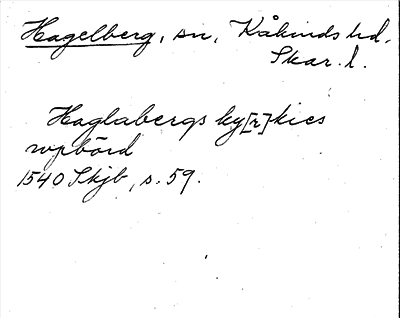 Hagelberg, sn, Kåkinds hd.
Skar. l.
Haglabergs ky[r]kies
wpbörd
1540 Skjb, s. 59.